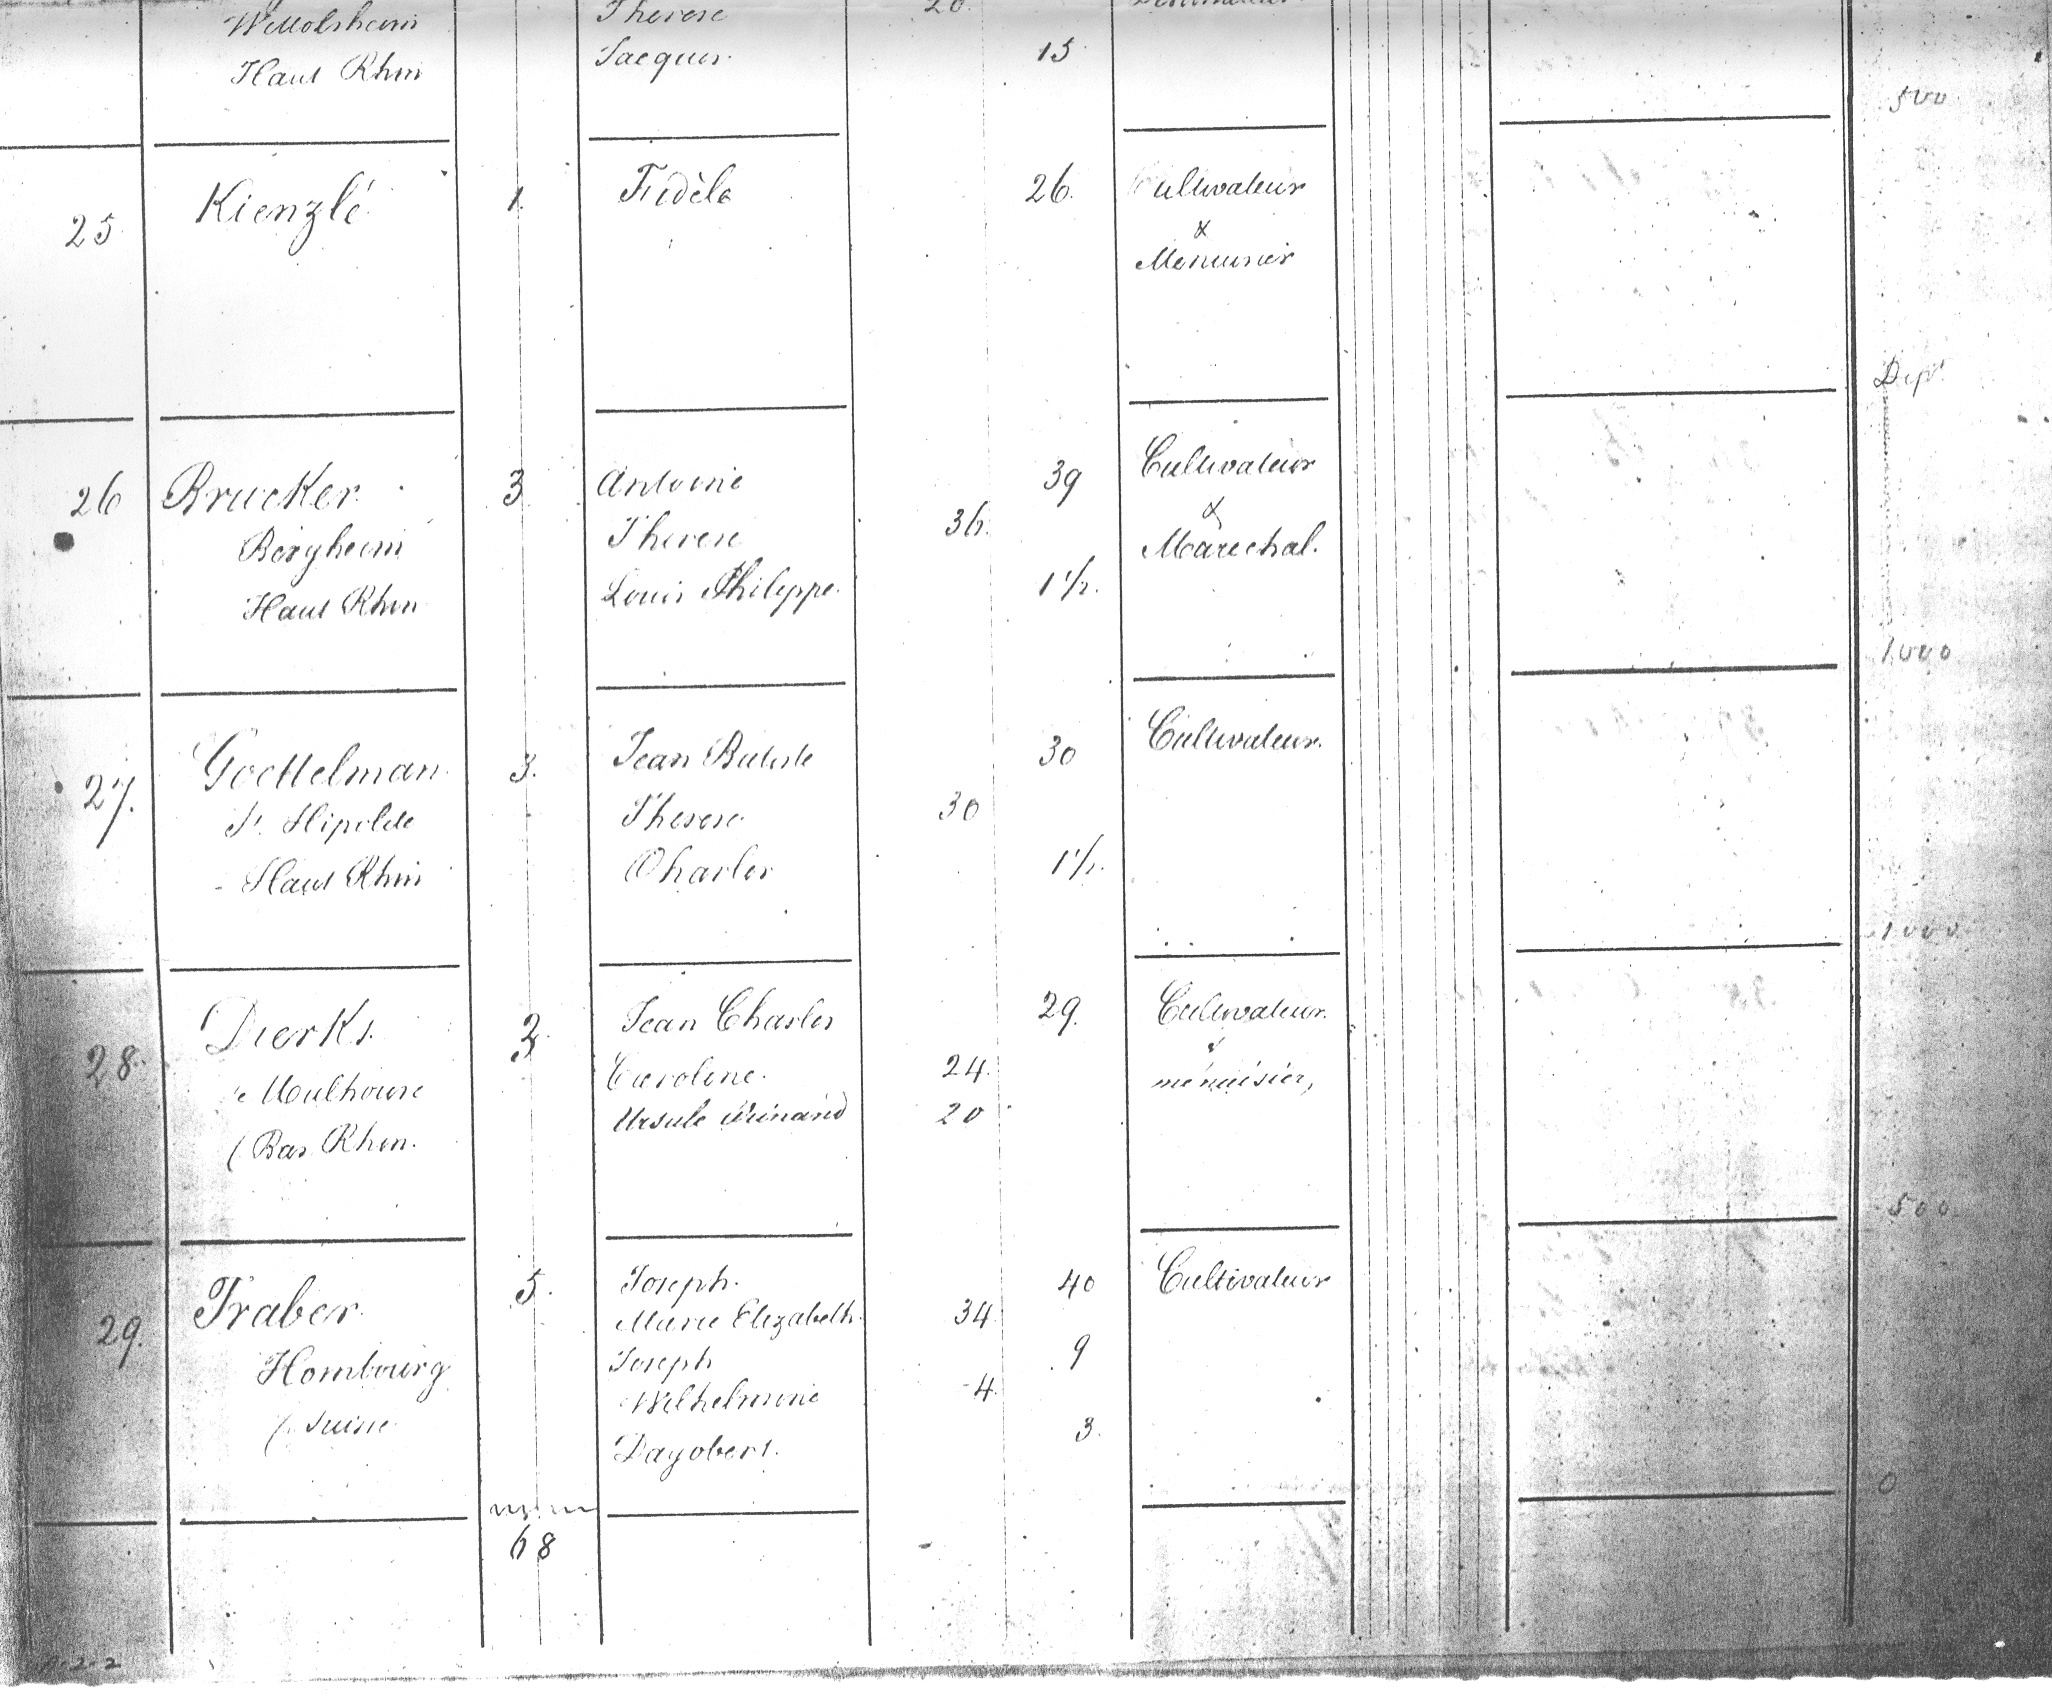 Therese 20
Haut Rhin Jacques. 15
500
25 Kienzlé 1. Fidèle 26. Cultivateur
&
Menuisier
Dept
26 Brucker. 3 Antoine 39 Cultivateur
Bergheim Therese 36. &
Haut Rhin Louis Philippe. 1 1/2. Marechal.
1000
27. Goettelman. 3. Jean Batiste 30 Cultivateur.
St. Hipolite Therese 30
Haut Rhin Charles 1 1/2.
1000
28. Dierks. 3 Jean Charles 29. Cultivateur.
Mulhouse Caroline. 24. &
( Bas Rhin. Ursule 20 menuisier,
500
29. Traber. 5. Joseph. 40 Cultivateur
Hombourg Marie Elizabeth. 34
( Suisse Joseph 9
Wilhelmine 4.
Dagobert. 3.
0
68